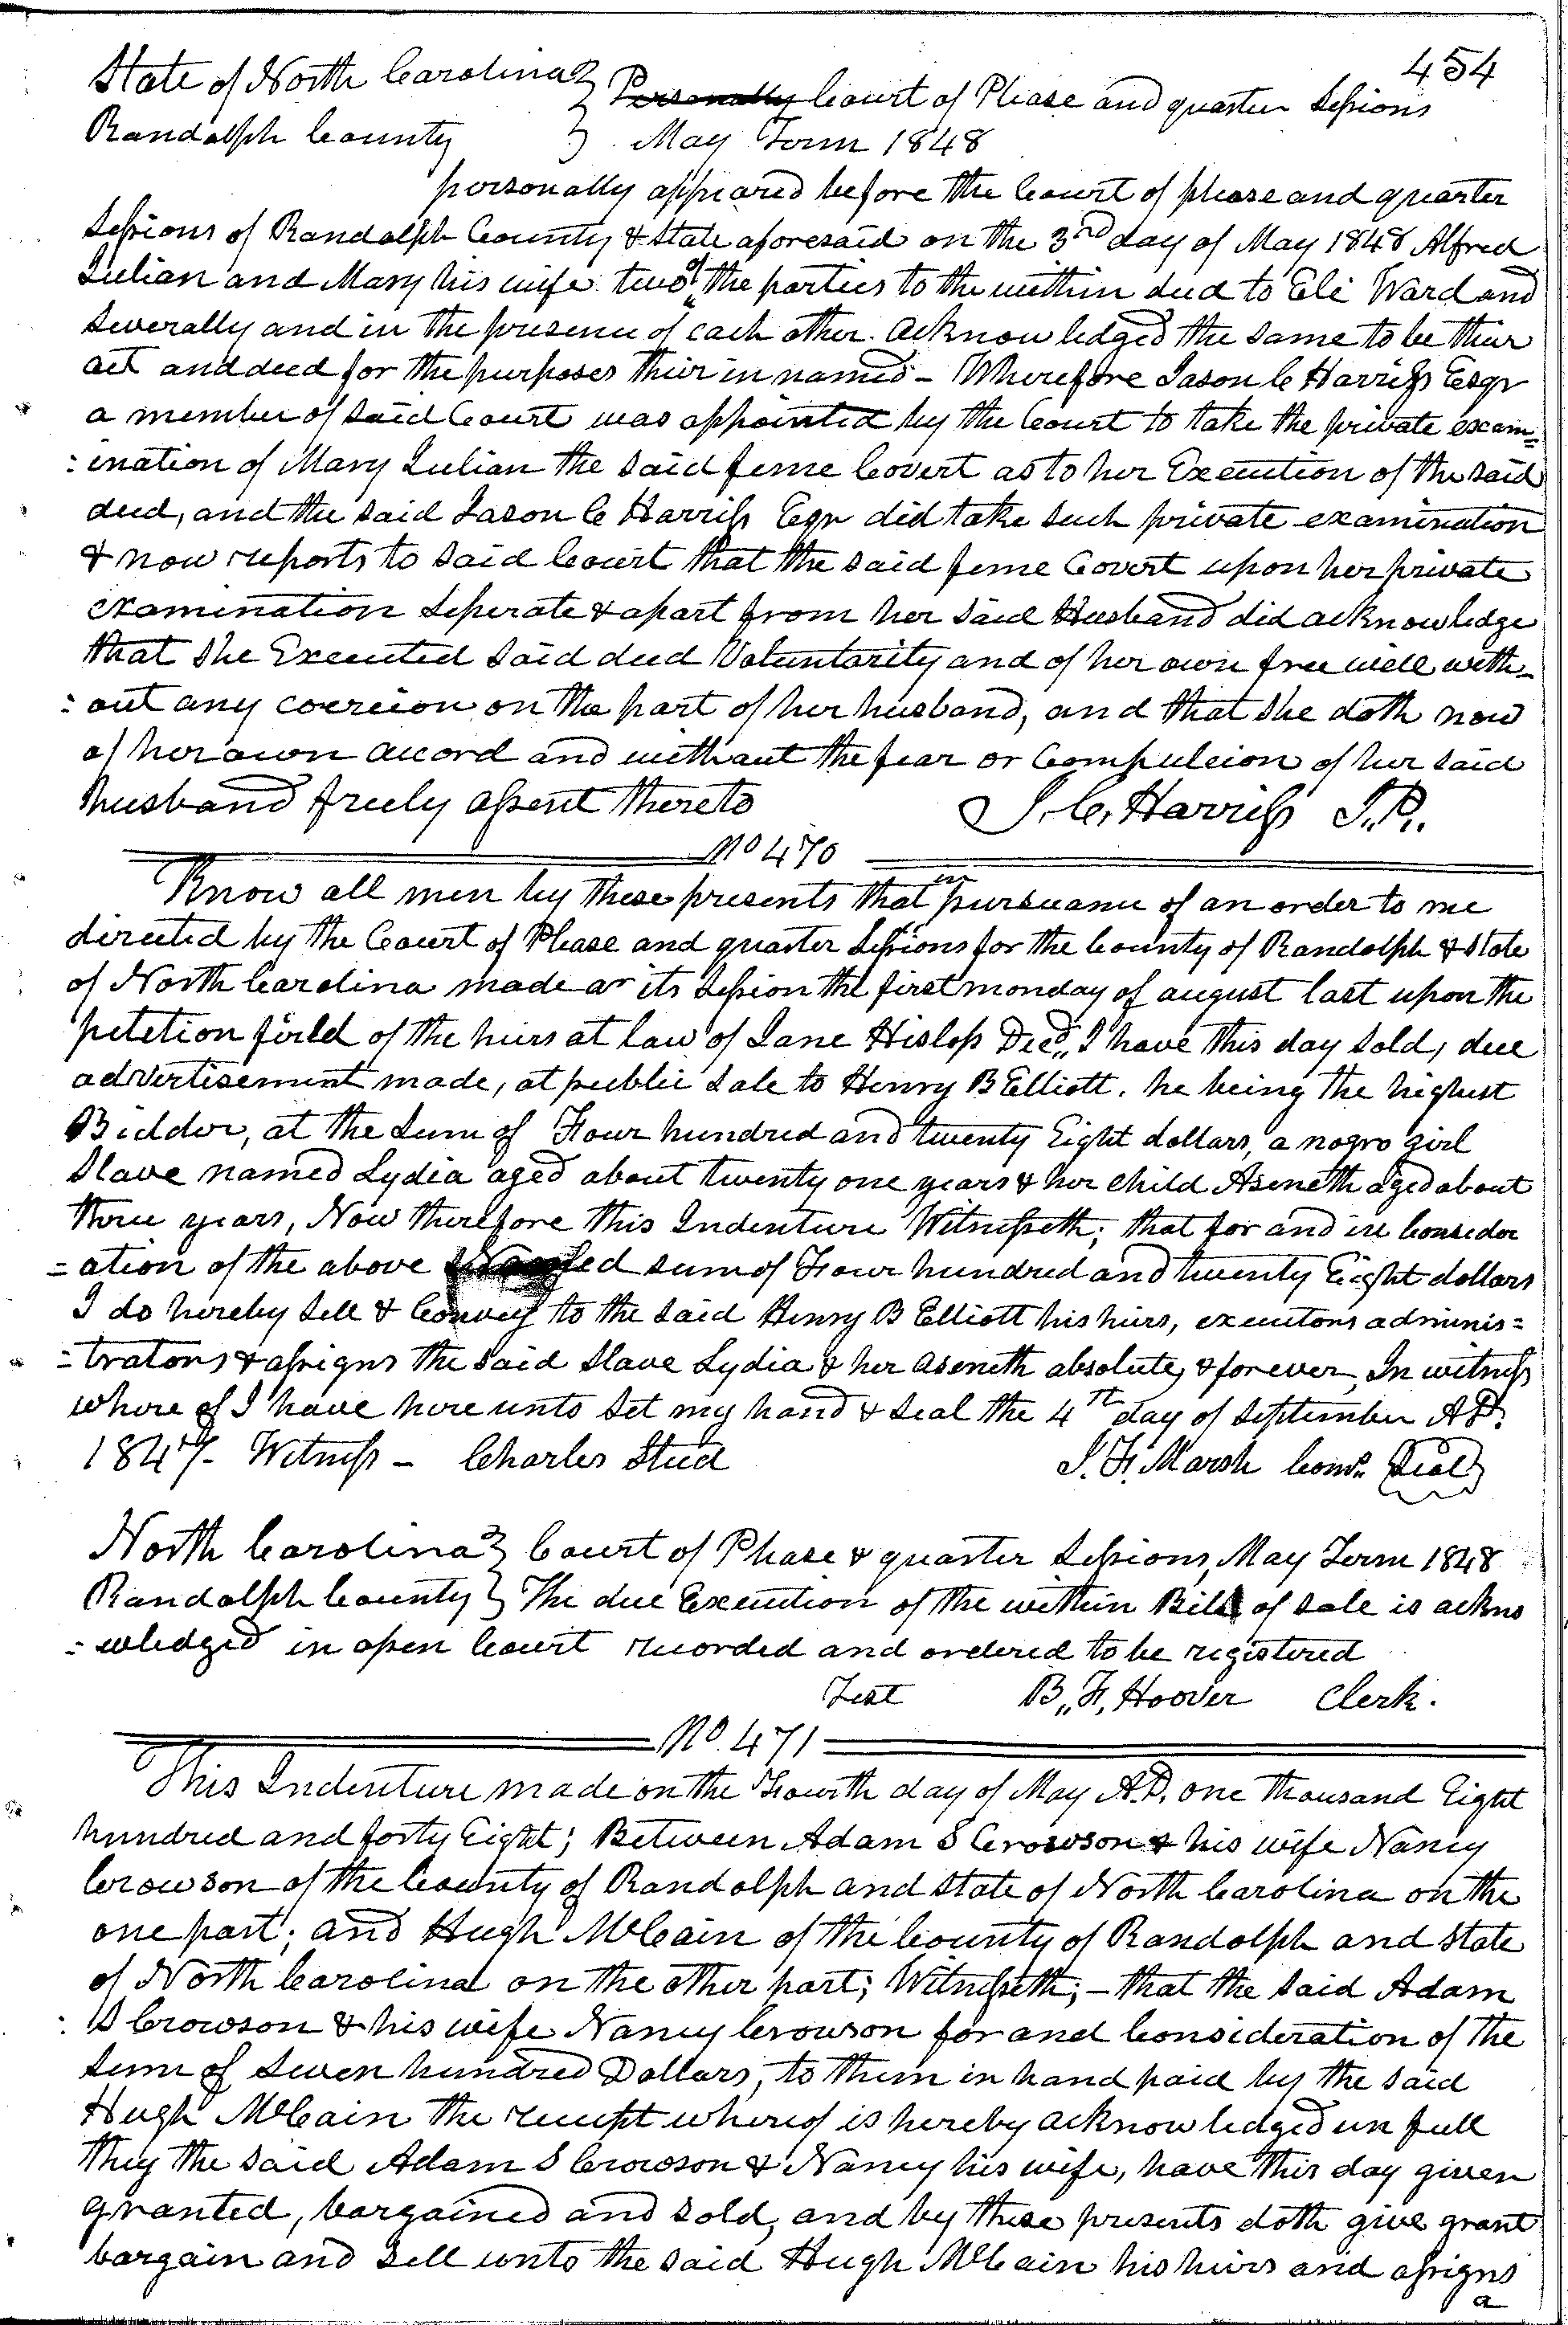 454
State of North Carolina } Personally Court of Please and quarter Sessions
Randolph County } May Term 1848
personally appeared before the Court of please and quarter
Sessions of Randolph County & State aforesaid on the 3rd day of May 1848 Alfred
Julian and Mary his wife two of the parties to the within deed to Eli Ward and
severally and in the presence of each other. acknowledged the same to be their
act and deed for the purposes their in named - Wherefore Jason C Harriss Esqr
a member of said Court was appointed by the Court to take the private exam=
:ination of Mary Julian the said feme Covert as to her Execution of the said
deed, and the said Jason C Harriss Esqr did take such private examination
& now reports to said Court that the said feme Covert upon her private
examination seperate & apart from her said Husband did acknowledge
that she Executed said deed Voluntarity and of her own free will with-
:out any coercion on the part of her husband, and that she doth now
of her own accord and without the fear or Compulsion of her said
husband freely assent thereto J. C. Harriss J.P.
No 470
Know all men by these presents that in pursuance of an order to me
directed by the Court of Please and quarter Sessions for the County of Randolph & State
of North Carolina made at its session the first monday of august last upon the
petetion field of the heirs at law of Jane Hislop Decd,, I have this day sold, due
advertisement made, at public sale to Henry B Elliott. he being the highest
Bidder, at the sum of Four hundred and twenty Eight dollars, a negro girl
Slave named Lydia aged about twenty one years & her child Aseneth aged about
three years, Now therefore this Indenture Witnesseth; that for and in Consider
=ation of the above sum of Four hundred and twenty Eight dollars
I do hereby sell & Convey to the said Henry B Elliott his heirs, executors adminis=
=trators & assigns the said slave Lydia & her Aseneth absolute, & forever, In witness
where of I have here unto set my hand & seal the 4th day of September AD.
1847- Witness - Charles Steed J. F. Marsh Comr. Seal
North Carolina } Court of Please & quarter Sessions, May Term 1848
Randolph County } The due Execution of the within Bill of sale is ackno
:wledged in open Court recorded and ordered to be registered
Test B,, F, Hoover Clerk.
No. 471
This Indenture made on the Fourth day of May A.D. one thousand Eight
hundred and forty Eight; Between Adam S Crowson & his wife Nancy
Crowson of the County of Randolph and State of North Carolina on the
one part; and Hugh McCain of the County of Randolph and State
of North Carolina on the other part; Witnesseth; - that the said Adam
S Crowson & his wife Nancy Crowson for and Consideration of the
sum of Seven hundred Dollars, to them in hand paid by the said
Hugh McCain the receipt whereof is hereby acknowledged in full
they the said Adam S Crowson & Nancy his wife, have this day given
granted, bargained and sold, and by these presents doth give grant
bargain and sell unto the said Hugh McCain his heirs and assigns
a